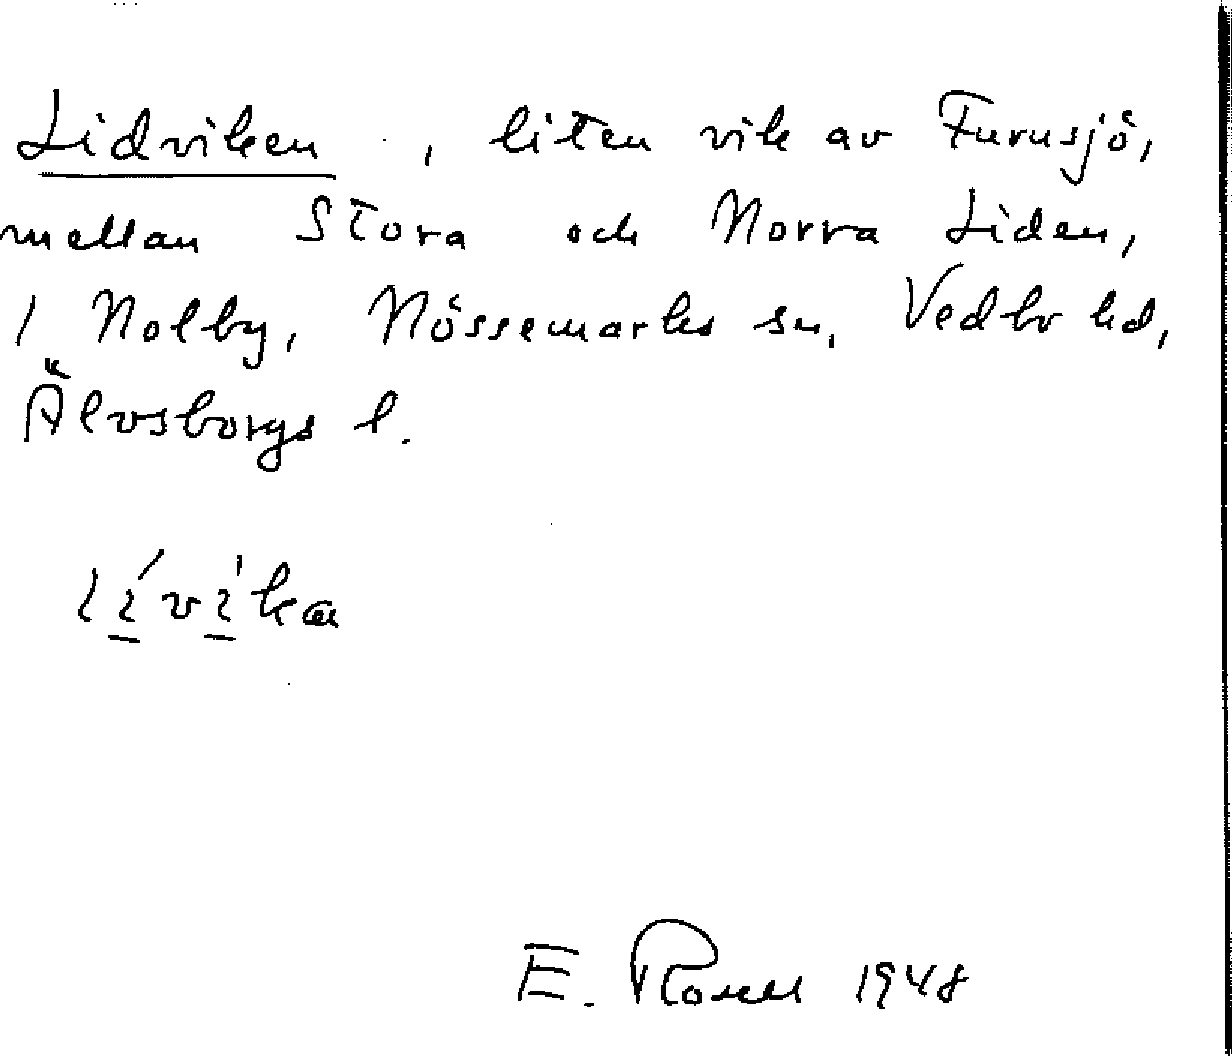 Lidviken , liten vik av Furusjö,
mellan Stora och Norra Liden,
i Nolby, Nössemarks sn, Vedbo hd,
Älvsborgs l.
lívíka
E. Rosell 1948